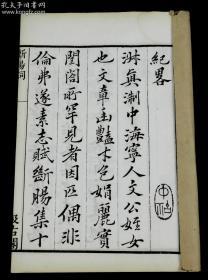 紀畧
淑真淛中海寧人文公姪女
也文章幽豔才色娟麗實
閨閣所罕見者因匹偶非
倫弗遂素志賦斷腸集十
斷腸詞
汲古閣
孔夫子旧书网